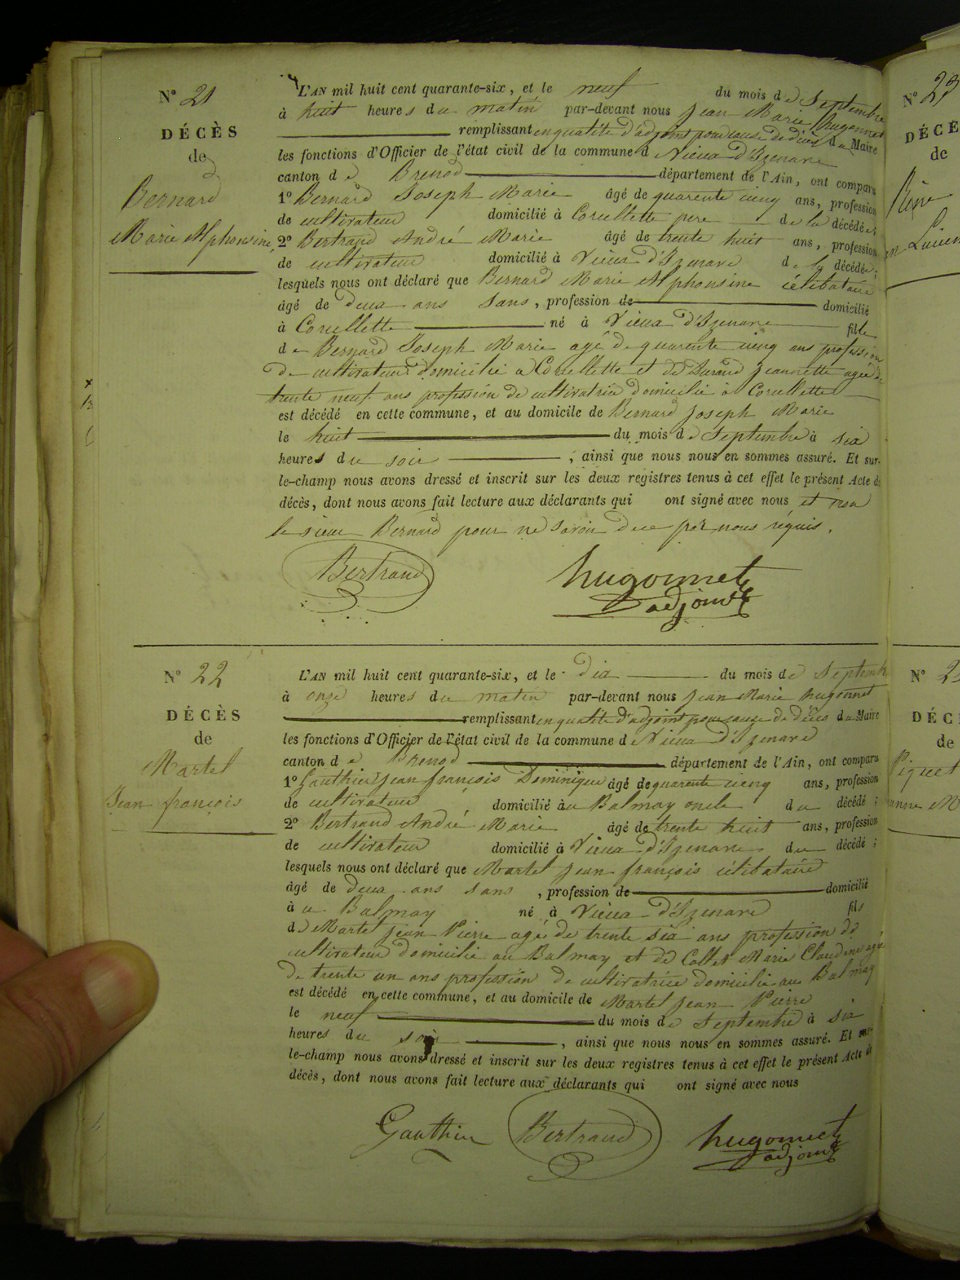 N° 21
DÉCÈS
de
Bernard
Marie Alphonsine
L'AN mil huit cent quarante-six, et le neuf du mois de Septembre
à huit heures du matin par-devant nous Jean Marie hugonnet
remplissant en qualité d'adjoint pour cause de décès du Maire
les fonctions d'Officier de l'état civil de la commune d Vieux d'Izenave
canton d e Brenod département de l'Ain, ont comparu
1° Bernard Joseph Marie âgé de quarente cinq ans, profession
de cultivateur domicilié à Corcellette pere de la décédée;
2° Bertrand André Marie âgé de trente huit ans, profession
de cultivateur domicilié à Vieux d'Izenave de la décédée;
lesquels nous ont déclaré que Bernard Marie Alphonsine célibataire
âgé de deux ans sans, profession de domicilié
à Corcellette né à Vieux d'Izenave fille
de Bernard Joseph Marie agé de quarente cinq ans profession
de cultivateur domicilié a Corcellette et de Jeannette agée de
trente neuf ans profession de cultivatrice domicilié à Corcellette
est décédé en cette commune, et au domicile de Bernard Joseph Marie
le huit du mois de Septembre à six
heures du soir, ainsi que nous nous en sommes assuré. Et sur-
le-champ nous avons dressé et inscrit sur les deux registres tenus à cet effet le présent Acte de
décès, dont nous avons fait lecture aux déclarants qui ont signé avec nous et non
le sieur Bernard pour ne savoir de ce par nous réquis.
Bertrand hugonnet
adjoint
N° 22
DÉCÈS
de
Martel
Jean françois
L'AN mil huit cent quarante-six, et le dix du mois de Septembre
à onze heures du matin par-devant nous Jean Marie hugonnet
remplissant en qualité d'adjoint pour cause de décès du Maire
les fonctions d'Officier de l'état civil de la commune d Vieux d'Izenave
canton d e Brenod département de l'Ain, ont comparu
1° Gauthier jean françois Dominique âgé de quarente cinq ans, profession
de cultivateur domicilié à au Balmay oncle du décédé;
2° Bertrand André Marie âgé de trente huit ans, profession
de cultivateur domicilié à Vieux d'Izenave du décédé;
lesquels nous ont déclaré que Martel Jean françois célibataire
âgé de deux ans sans, profession de domicilié
à au Balmay né à Vieux d'Izenave fils
d Martel Jean Pierre agé de trente six ans profession de
cultivateur domicilié au Balmay et de Collet Marie Claudine agée
de trente un ans profession de cultivatrice domicilié au Balmay
est décédé en cette commune, et au domicile de Martel Jean Pierre
le neuf du mois de septembre à six
heures du soir, ainsi que nous nous en sommes assuré. Et sur-
le-champ nous avons dressé et inscrit sur les deux registres tenus à cet effet le présent Acte de
décès, dont nous avons fait lecture aux déclarants qui ont signé avec nous
Gauthier Bertrand hugonnet
adjoint
N° 23
DÉCÈ
de
Lucien
N° 2
DÉCÈ
de